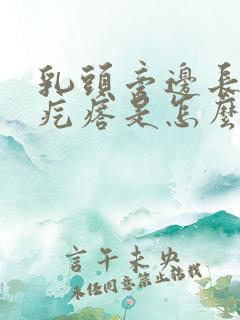 乳頭旁邊長
疙瘩是怎麼
言午未央
未任同意禁止轉載